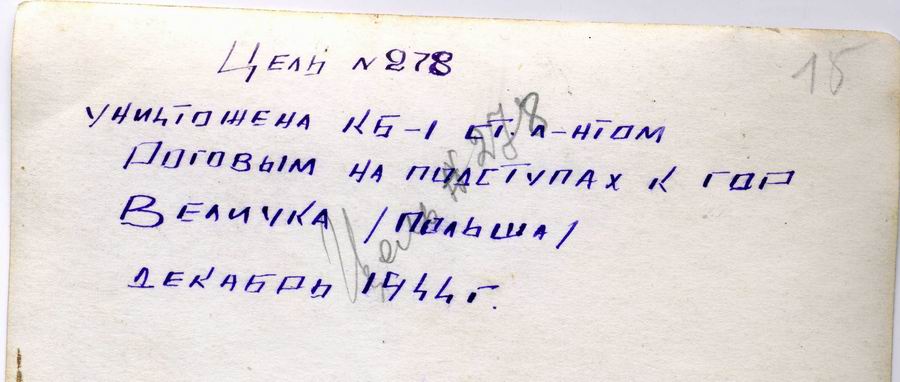 Цель N 278
15
уничтожена КБ-1 ст. л-нтом
Роговым на подступах к гор
Величка /Польша/
декабрь 1944 г.
Цель № 278